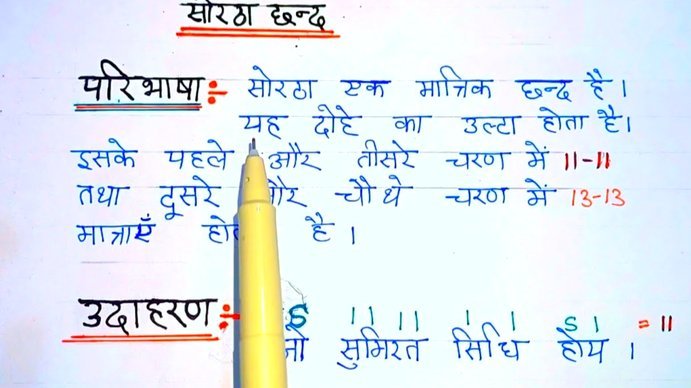 सोरठा छन्द
परिभाषा ÷ सोरठा एक मात्रिक छन्द है ।
यह दोहे का उल्टा होता है।
इसके पहले और तीसरे चरण में 11-11
तथा दूसरे और चौथे चरण में 13-13
मात्राएँ है ।
उदाहरण ÷ S I I I I I I S I = 11
सुमिरत सिधि होय ।